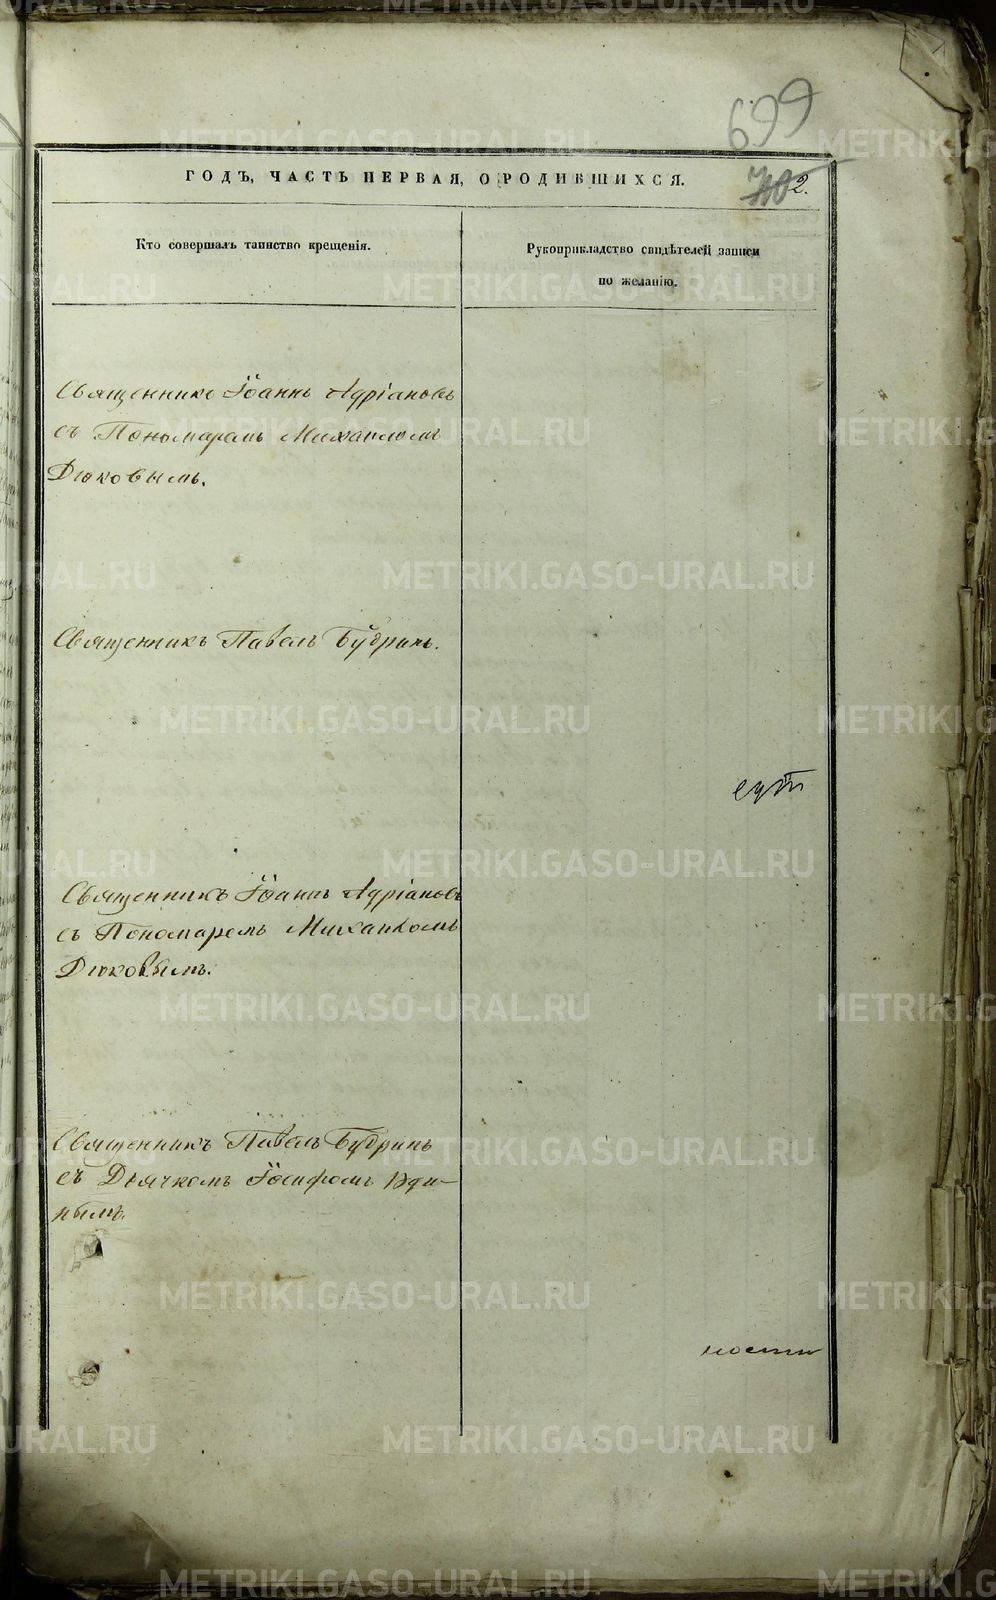 699
702.
ГОДЪ, ЧАСТЬ ПЕРВАЯ, О РОДИВШИХСЯ.
Кто совершалъ таинство крещенія.
Рукоприкладство свидѣтелей записи
по желанію.
Священникъ Іоаннъ Адріановъ
съ Пономаремъ Михаиломъ
Дюковымъ.
Священникъ Павелъ Бубринъ.
Священникъ Іоаннъ Адріановъ
съ Пономаремъ Михаиломъ
Дюковымъ.
Священникъ Павелъ Бубринъ
съ Дьячкомъ Іосифомъ Уди-
нымъ.
ности
METRIKI.GASO-URAL.RU